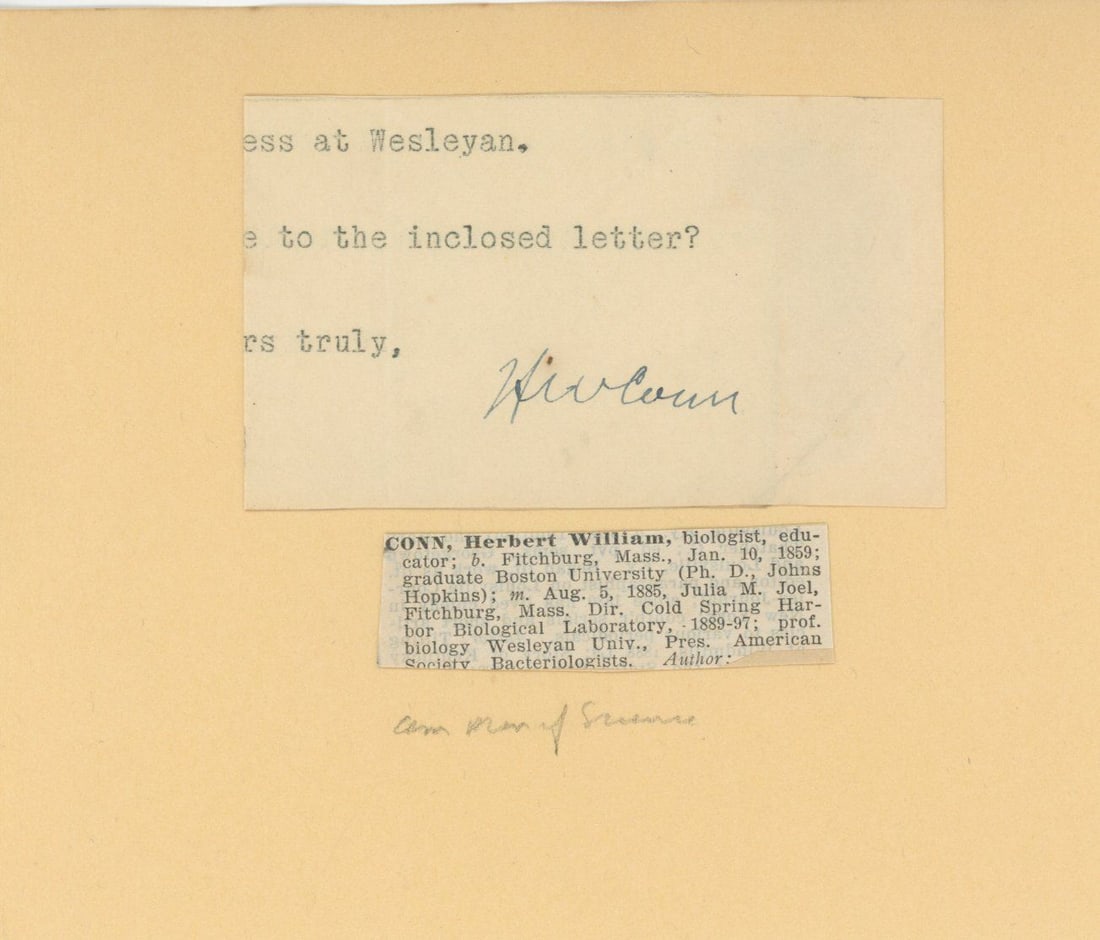 ess at Wesleyan.
e to the inclosed letter?
rs truly,
HWConn
CONN, Herbert William, biologist, edu-
cator; b. Fitchburg, Mass., Jan. 10, 1859;
graduate Boston University (Ph. D., Johns
Hopkins); m. Aug. 5, 1885, Julia M. Joel,
Fitchburg, Mass. Dir. Cold Spring Har-
bor Biological Laboratory, 1889-97; prof.
biology Wesleyan Univ., Pres. American
Society Bacteriologists. Author:
Am Men of Science